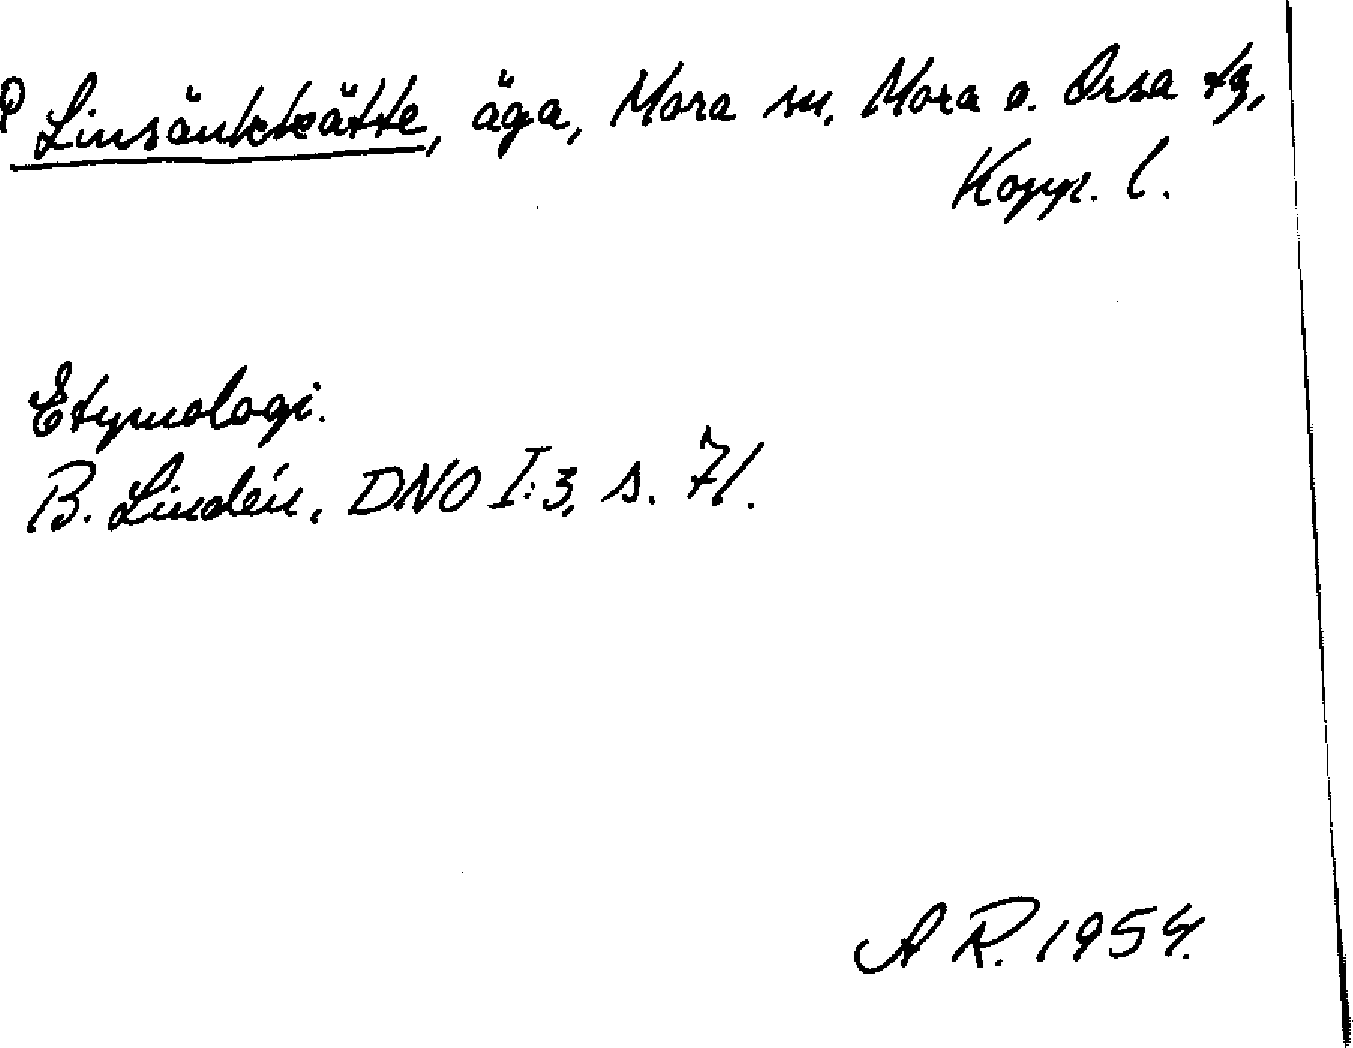 Linsänkkätte, äga, Mora sn, Mora o. Orsa tg,
Kopp. l.
Etymologi.
B. Lindén, DNO I:3, s. 71.
A R. 1954.